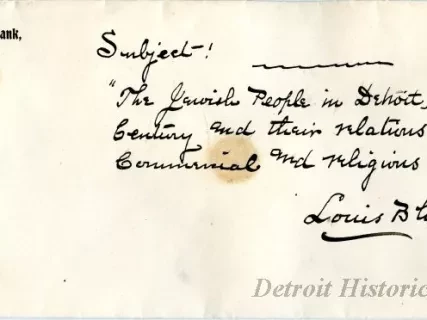 ank,
Subject!
"The Jewish People in Detroit,
Century and their relations
Commercial and religious
Louis Bl
Detroit Historic